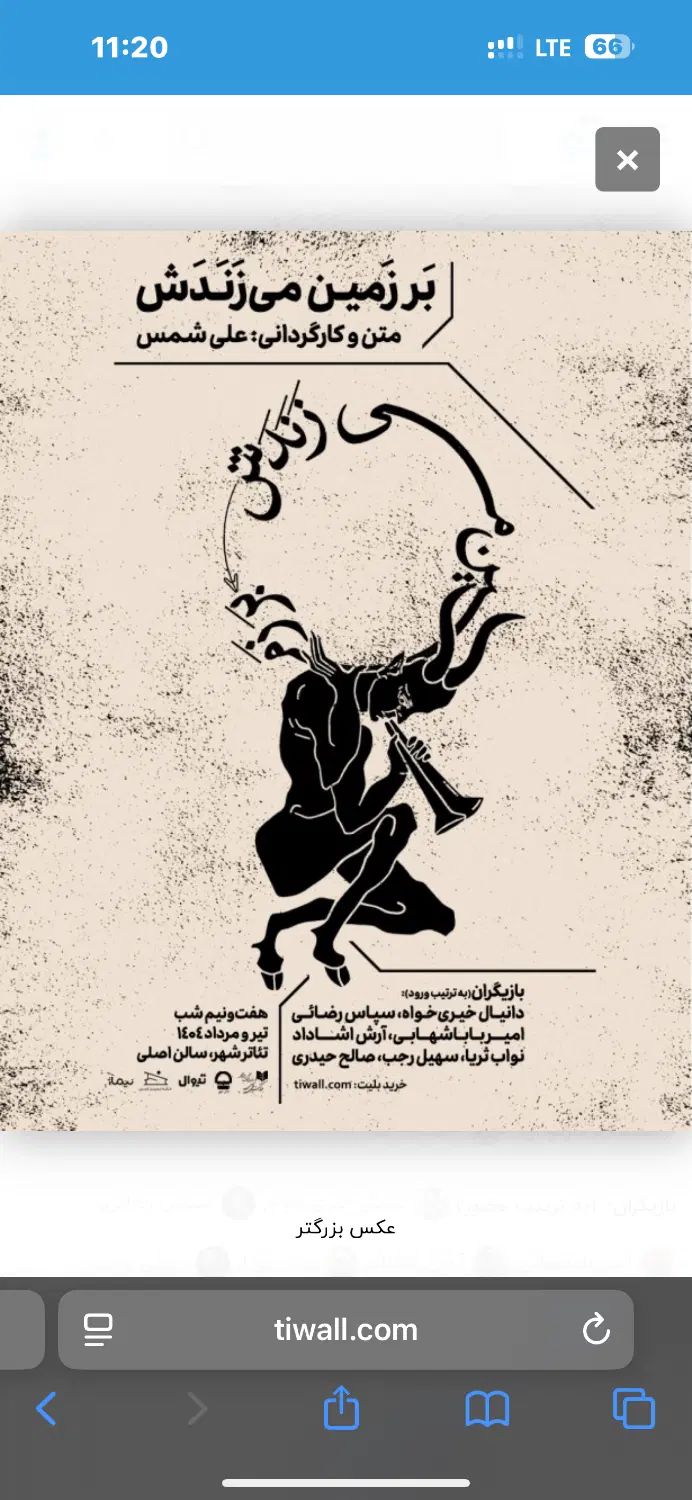 11:20
LTE
66
بَر زَمین می‌زَنَدَش
متن و کارگردانی: علی شمس
بر زمین می زندش
بازیگران(به ترتیب ورود):
دانیال خیری‌خواه، سپاس رضائی
امیر باباشهابی، آرش اشاداد
نواب ثریا، سهیل رجب، صالح حیدری
خرید بلیت: tiwall.com
هفت‌ونیم شب
تیر و مرداد ۱٤۰٤
تئاترشهر، سالن اصلی
تیوال
نیماژ
عکس بزرگتر
tiwall.com